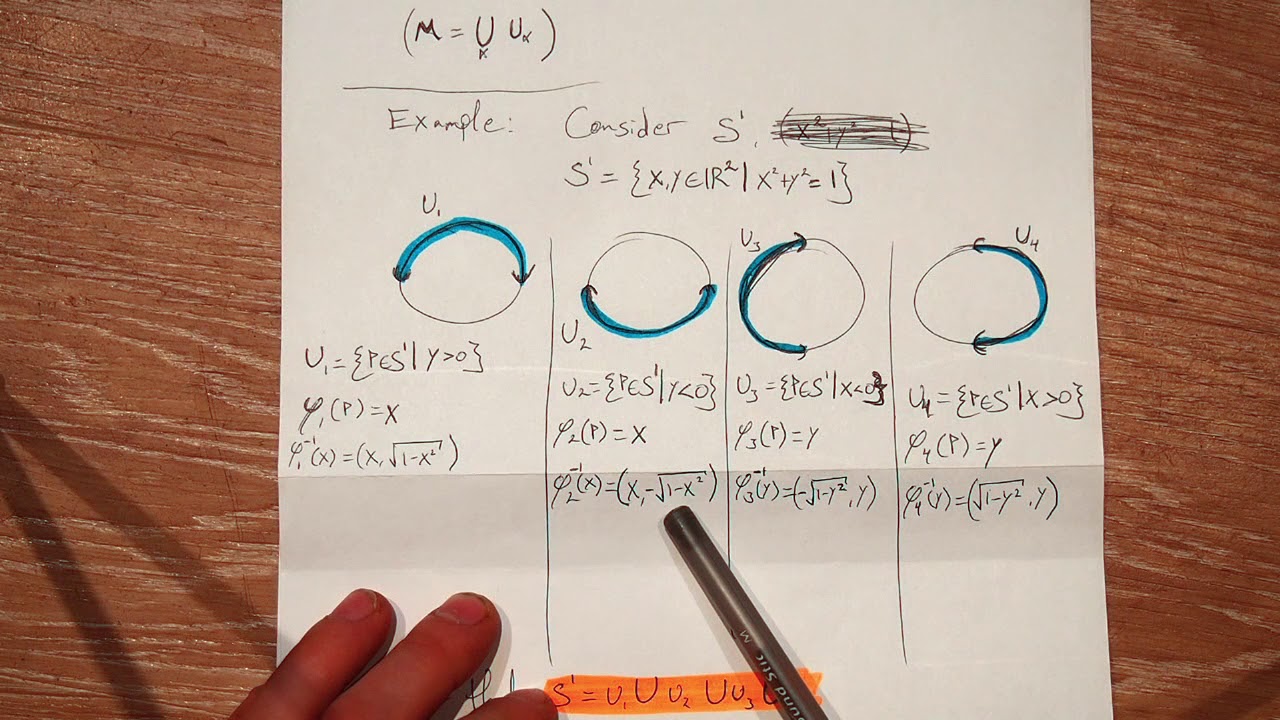 (M = ⋃_α U_α)
Example: Consider S¹, (x²+y²=1)
S¹ = {x,y∈ℝ² | x²+y²=1}
U₁
U₂
U₃
U₄
U₁={P∈S¹ | y>0}
φ₁(P)=x
φ₁⁻¹(x)=(x,√(1-x²))
U₂={P∈S¹ | y<0}
φ₂(P)=x
φ₂⁻¹(x)=(x,-√(1-x²))
U₃={P∈S¹ | x<0}
φ₃(P)=y
φ₃⁻¹(y)=(-√(1-y²),y)
U₄={P∈S¹ | x>0}
φ₄(P)=y
φ₄⁻¹(y)=(√(1-y²),y)
S¹=U₁⋃U₂⋃U₃
M
ound stic